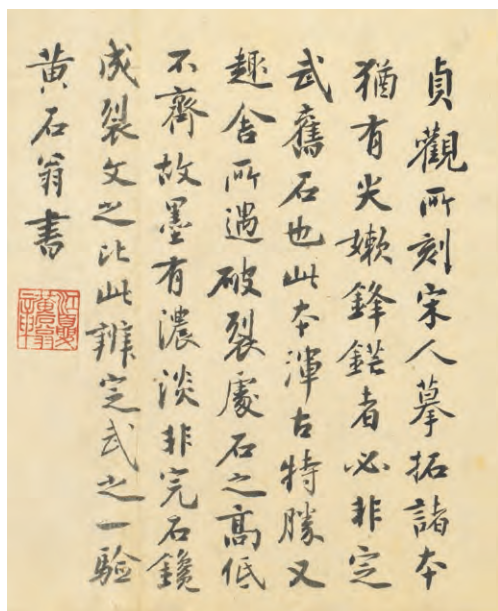 貞觀所刻宋人摹拓諸本
猶有尖嫰鋒鋩者必非定
武舊石也此本渾古特勝又
趣舍所遇破裂處石之高低
不齊故墨有濃淡非完石鑱
成裂文之比此辨定武之一驗
黄石翁書